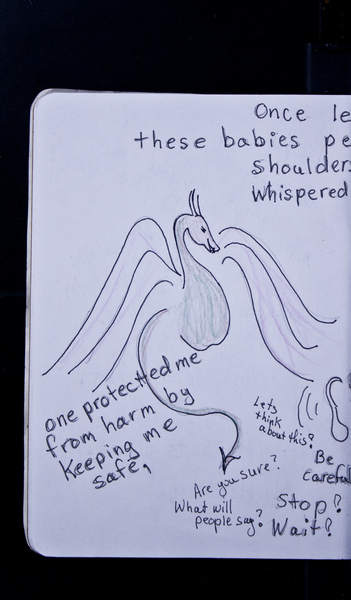 Once le
these babies pe
shoulder
whispered
one protected me
from harm by
keeping me
safe,
Lets
think
about this?
Are you sure?
What will
people say?
Be
careful
Stop?
Wait?